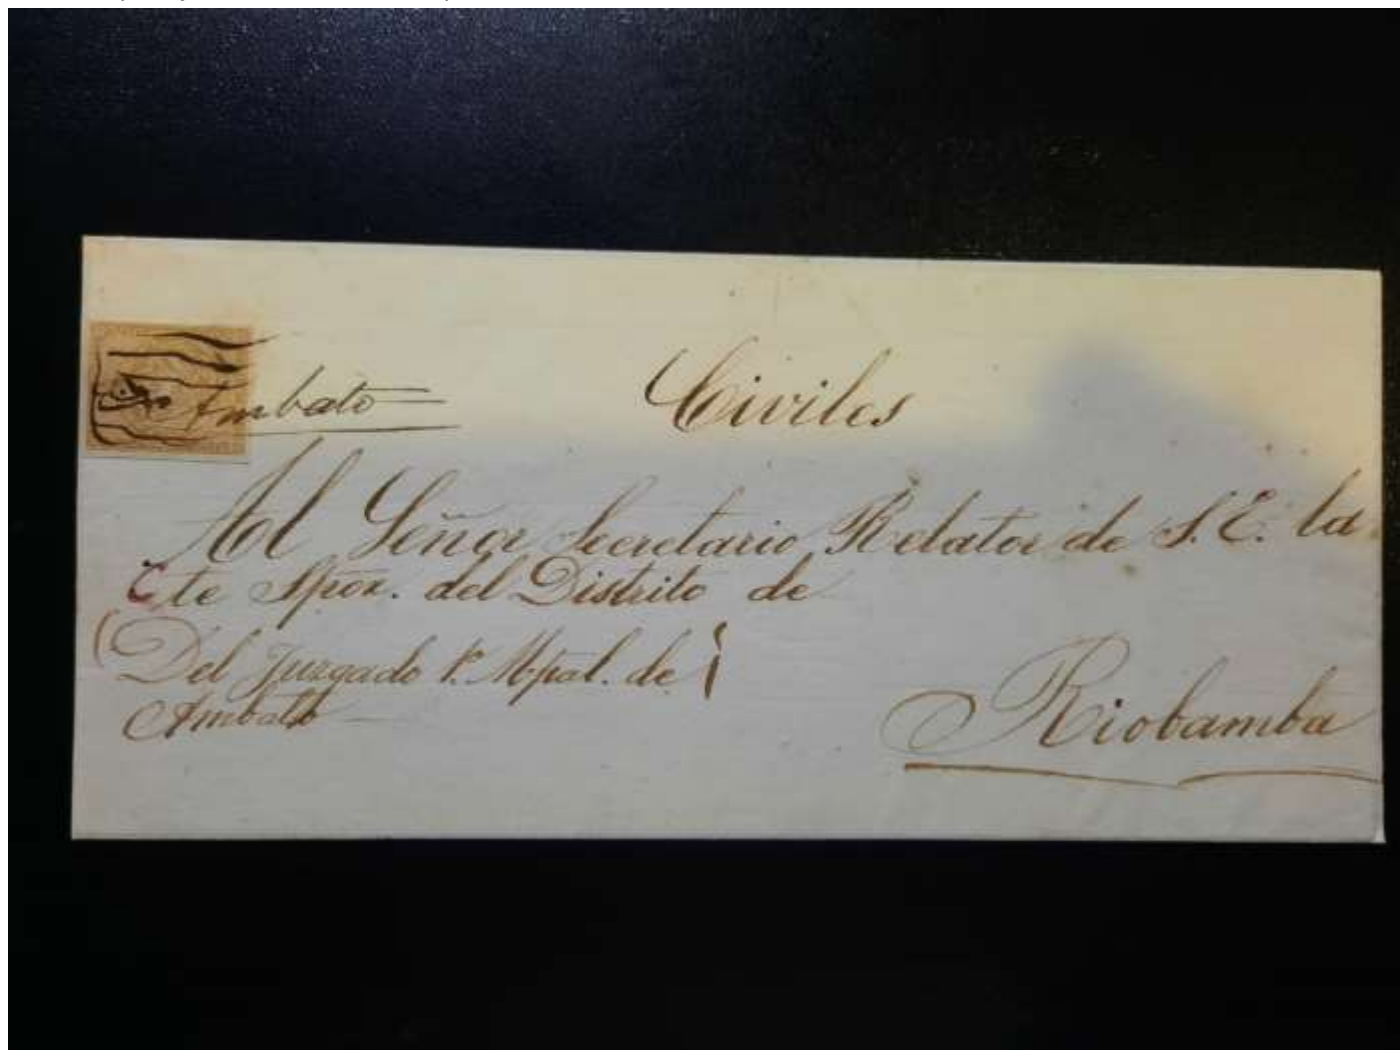 Ambato
Civiles
Al Señor Secretario Relator de S. E. la
Cte Spor. del Distrito de
Del Juzgado 1º. Mpal. de
Ambato
Riobamba